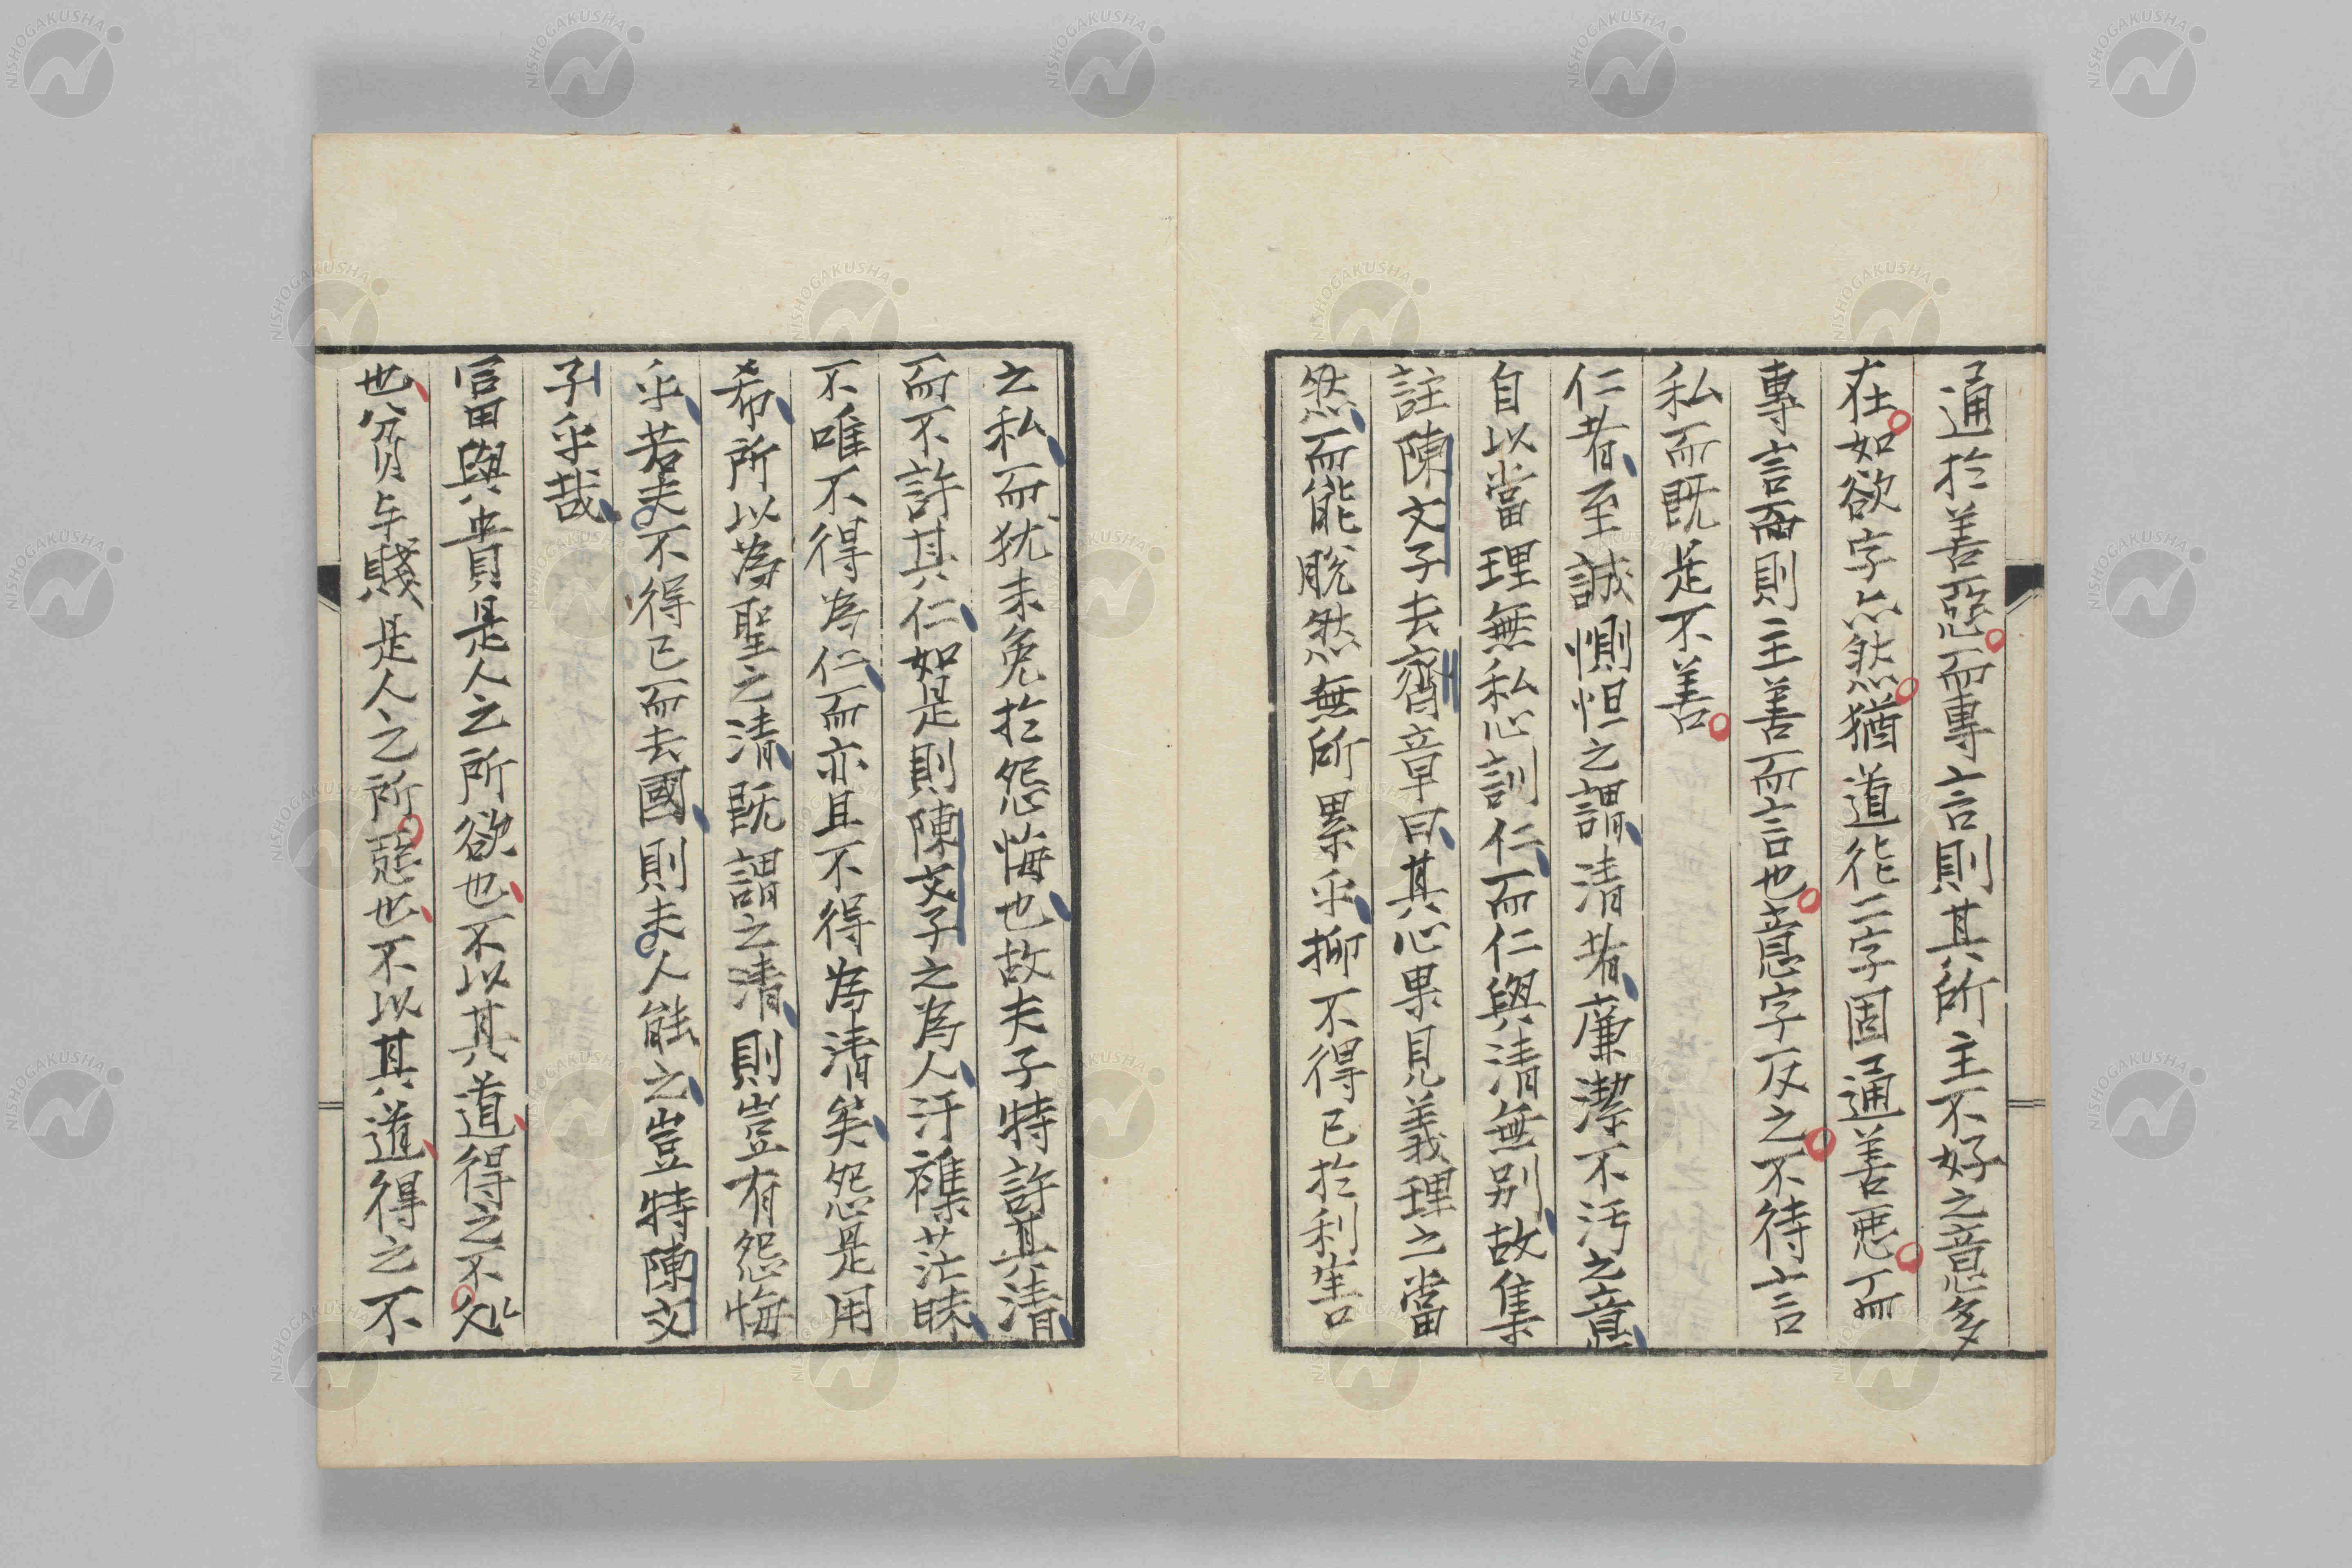 通於善惡而專言則其所主不好之意多
在如欲字亦然猶道徑二字固通善惡而
專言而則主善而言也意字反之不待言
私而既是不善
仁者至誠惻怛之謂清者廉潔不汚之意
自以當理無私心訓仁而仁與清無別故集
註陳文子去齊章曰其心果見義理之當
然而能脫然無所累乎抑不得已於利害
之私而犹未免於怨悔也故夫子特許其清
而不許其仁如是則陳文子之為人汙襍茫昧
不唯不得為仁而亦且不得為清矣怨是用
希所以為聖之清既謂之清則豈有怨悔
乎若夫不得已而去國則夫人能之豈特陳文
子乎哉
冨與貴是人之所欲也不以其道得之不处
也貧与賤是人之所惡也不以其道得之不
NISHOGAKUSHA